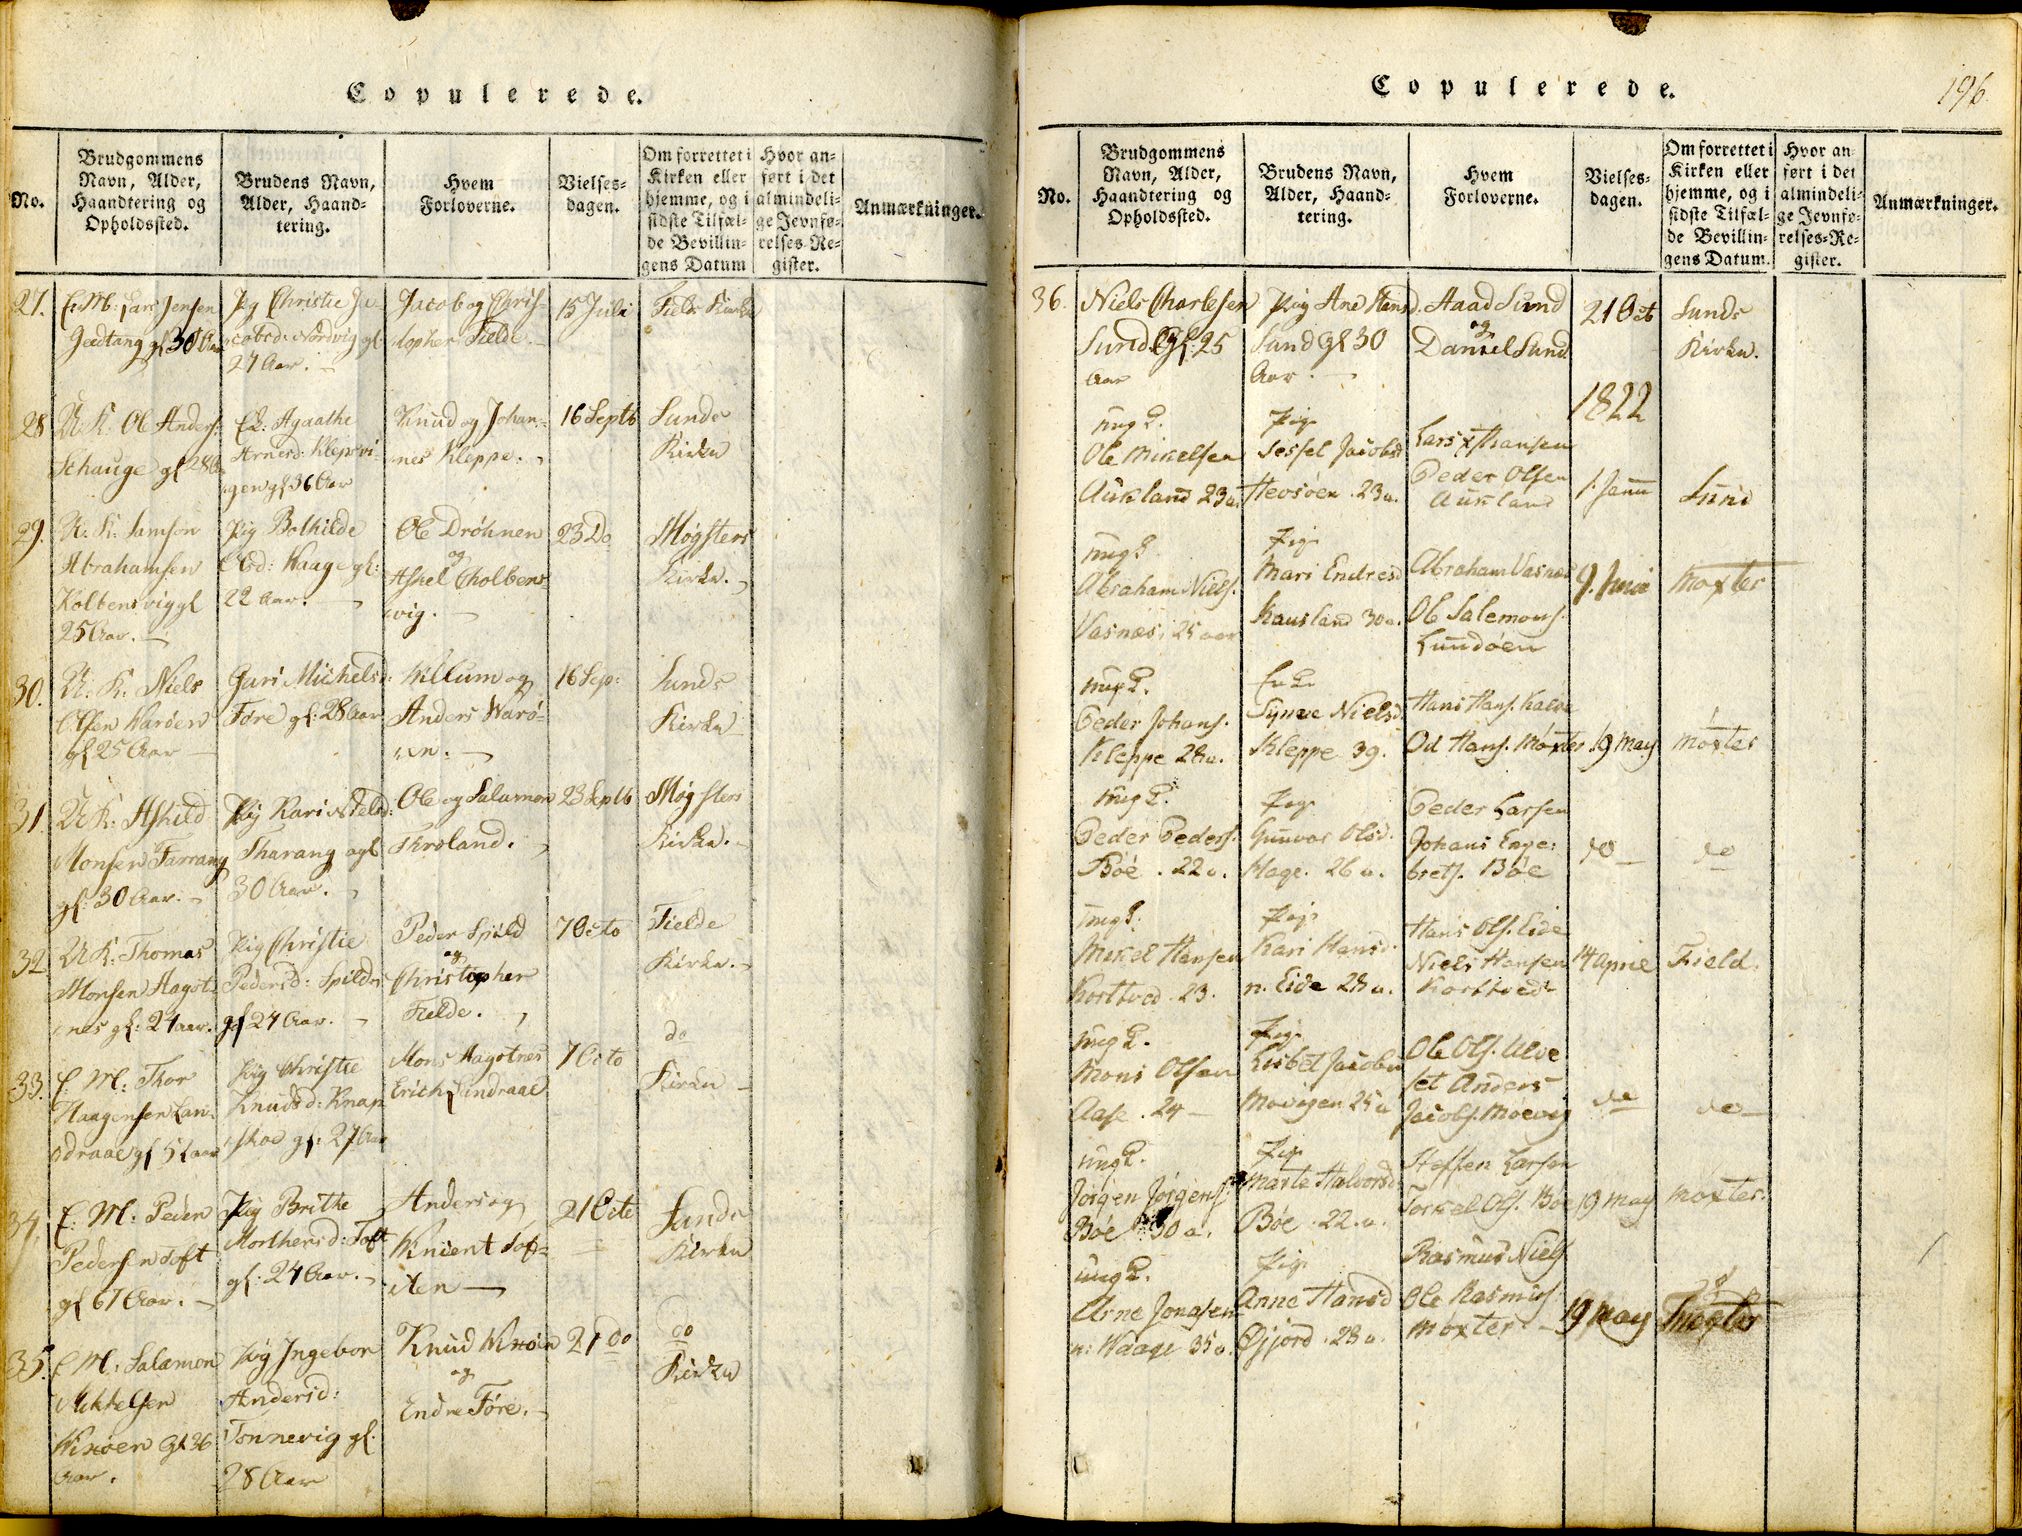 Copulerede.
No.
Brudgommens
Navn, Alder,
Haandtering og
Opholdssted.
Brudens Navn,
Alder, Haand-
tering.
Hvem
Forloverne.
Vielses-
dagen.
Om forrettet i
Kirken eller
hjemme, og i
sidste Tilfæl-
de Bevillin-
gens Datum
Hvor an-
ført i det
almindeli-
ge Jevnfø-
relses-Re-
gister.
Anmærkninger.
27.
E: M: Lars Jensen
gl 30 Aar
Pig Christie Ja-
cobsd: Nordvig gl:
27 Aar.
Jacob og Chris-
topher Fielde.
15 Juli
Fields Kirke
28
U: K: Ole Anders:
Schauge gl 28
E: Agaathe
Arnesd: Klepsvi-
gen gl 36 Aar
Knud og Johan-
nes Kleppe.
16 Septb
Sunds
Kirke
29.
U: K: Samson
Abrahamsen
Kolbensvig gl
25 Aar.
Pig Bolhilde
Olsd: Waage gl:
22 Aar.
Ole Dröhnen
og
Askel Cholbens
vig.
23 Do
Møgsters
Kirke.
30.
U: K: Niels
Olsen Waröen
gl 25 Aar
Guri Michelsd:
Føre gl: 28 Aar
Willum og
Anders Warö-
en.
16 Sep:
Sunds
Kirke
31.
U K: Askild
Monsen Tarrang
gl: 30 Aar.
Pig Kari Nielsd:
Tharang og gl
30 Aar.
Ole og Salamon
Throland.
23 Septb
Møgsters
Kirke.
32
U K: Thomas
Monsen Hagot-
nes gl: 24 aar.
Pig Christie
Pedersd: Spilde
gl 24 Aar.
Peder Spild
og
Christopher
Fielde.
7 Octo
Fielde
Kirke.
33.
E. M: Thor
Haagensen Lan-
draae gl 51 aar
Pig Christie
Knudsd: Knap
skoe gl: 27 Aar
Mons Hagotnes
Erich Lindraae
7 Octo
do
Kirke
34.
E: M: Peder
Pedersen Toft
gl 67 Aar.
Pig Brithe
Morthensd: Toft
gl: 24 Aar.
Anders og
Knient Tof-
ten
21 Octo
Sunds
Kirke
35.
E M: Salamon
Mikkelsen
Wixöen gl 36
Aar.
Pig Ingebor
Andersd:
Tonnevig gl.
28 Aar
Knud Wixöen
og
Endre Føre.
21 do
do
Kirke
Copulerede.
196.
No.
Brudgommens
Navn, Alder,
Haandtering og
Opholdssted.
Brudens Navn,
Alder, Haand-
tering.
Hvem
Forloverne.
Vielses-
dagen.
Om forrettet i
Kirken eller
hjemme, og i
sidste Tilfæl-
de Bevillin-
gens Datum.
Hvor an-
ført i det
almindeli-
ge Jevnfø-
relses-Re-
gister.
Anmærkninger.
36.
Niels Charlesen
Sund gl: 25
Aar
Pig Ane Hansd.
Sund gl 30
Aar.
Aad Sund
og
Daniel Sund
21 Oct
Sunds
Kirke.
1822
ung K.
Ole Mikelsen
Aukland 23 a.
Pig.
Sessel Jacobsd
Hevsöen. 23 a.
Lars Hansen
Peder Olsen
Aukland
1. Janu
Sund
ung K.
Abraham Niels.
Vasnæs, 25 aar
Pige
Mari Endresd
Hausland 30 a.
Abraham Vasnæs
Ole Salemons.
Lundöen
9. Junie
Moxter
ung K.
Peder Johans.
Kleppe 28 a.
Enke
Synne Nielsd.
Kleppe 39.
Hans Hans. Kalve
Od Hans. Møxter
19 May
Møxter
ung K.
Peder Peders.
Böe. 22 a.
Pige
Gunvor Olsd.
Hage. 26 a.
Peder Larsen
Johans Enge-
brets. Böe
do
do
ung K.
Mikel Hansen
Korttved. 23.
Pige
Kari Hansd.
n. Eide 28 a.
Hans Ols. Eide
Niels Hansen
Korttved
14 April
Field.
ung K.
Mons Olsen
Aase. 24
Pige
Lisbet Jacobsd
Movigen 25 a
Ole Ols. Alve
set Anders
Jacobs. Moevig
do
do
ung K.
Jörgen Jörgens.
Böe 30 a.
Pige
Marte Halvorsd.
Böe. 22. a.
Steffen Larsen
Torkel Ols. Böe
19 May
Moxter.
ung K.
Arne Jonasen
n: Waage 35 a.
Pige
Anne Hansd
Öjjord. 28 a.
Rasmus Niels
Ole Rasmus.
Moxter
19 May